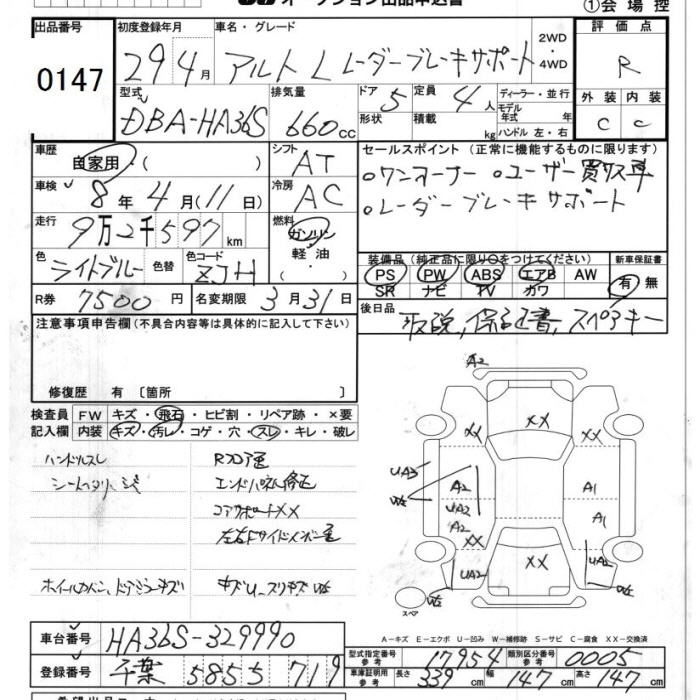 オークション出品申込書
①会場控
出品番号 0147
初度登録年月 29年4月
車名・グレード アルト L レーダーブレーキサポート
2WD・4WD
評価点 R
外装 C 内装 C
型式 DBA-HA36S
排気量 660cc
ドア 5 形状
定員 4人 積載 kg
ディーラー・並行
モデル年式 年
ハンドル 左・右
車歴 自家用・( )
シフト AT
セールスポイント(正常に機能するものに限ります)
○ワンオーナー ○ユーザー買取車
○レーダーブレーキサポート
車検 8年4月(11日)
冷房 AC
走行 9万2千597km
燃料 ガソリン 軽油・( )
色 ライトブルー 色替 色コード ZJH
装備品(純正品に限り○をつけてください)
PS PW ABS エアB AW
SR ナビ TV カワ
新車保証書 有 無
R券 7500円 名変期限 3月31日
後日品 取説, 保証書, スペアキー
注意事項申告欄(不具合内容等は具体的に記入して下さい)
修復歴 有〔箇所 〕
検査員記入欄 FW キズ・飛石・ヒビ割・リペア跡・×要
内装 キズ・汚レ・コゲ・穴・スレ・キレ・破レ
ハンドルスレ Rフロア
シート
エンドパネル修正
コアサポートXX
ホイールカバー、ドアミラーキズ
A2
XX XX XX
UA3
A2 A1
UA2 A1
A2
XX XX
UA2 UA2
スペア
A-キズ E-エクボ U-凹み W-補修跡 S-サビ C-腐食 XX-交換済
車台番号 HA36S-329990
型式指定番号 参考 17954 類別区分番号 参考 0005
登録番号 千葉 585 719
車庫証明用 参考 長さ 339cm 幅 147cm 高さ 147cm